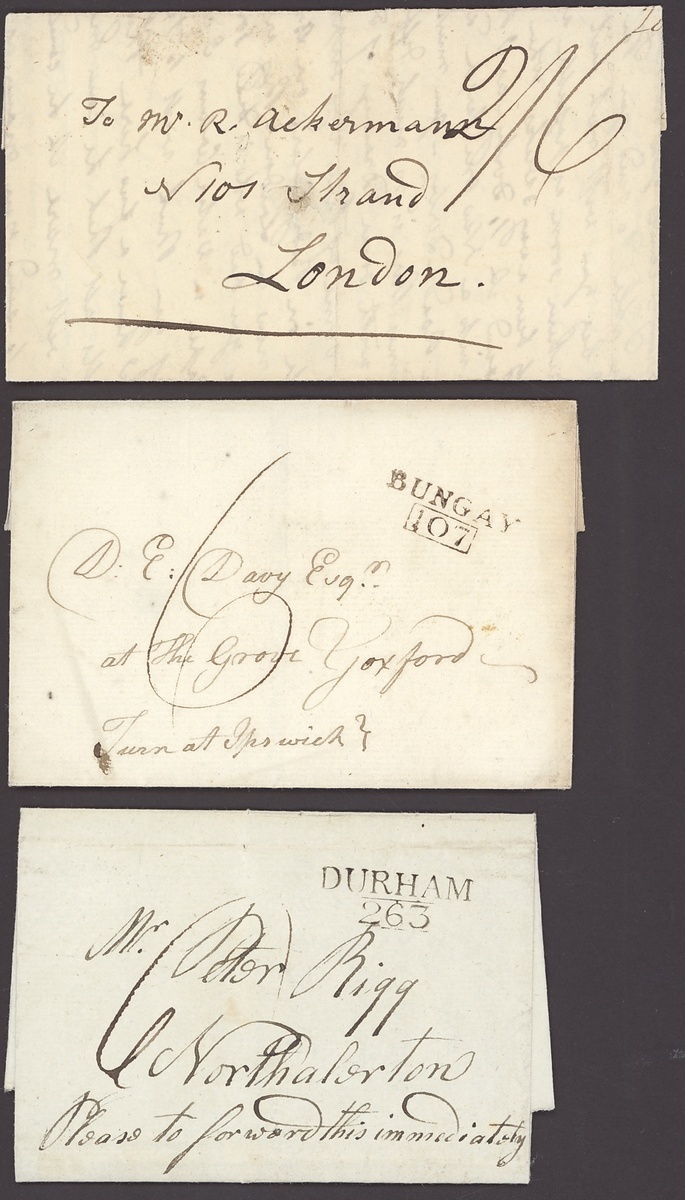 To Mr. R. Ackermann
N 101 Strand
London.
BUNGAY
107
6
D: E: Davy Esqr.
at The Grove Yoxford
Turn at Ipswich
DURHAM
263
Mr. Peter Rigg
Northalerton
Please to forward this immediately